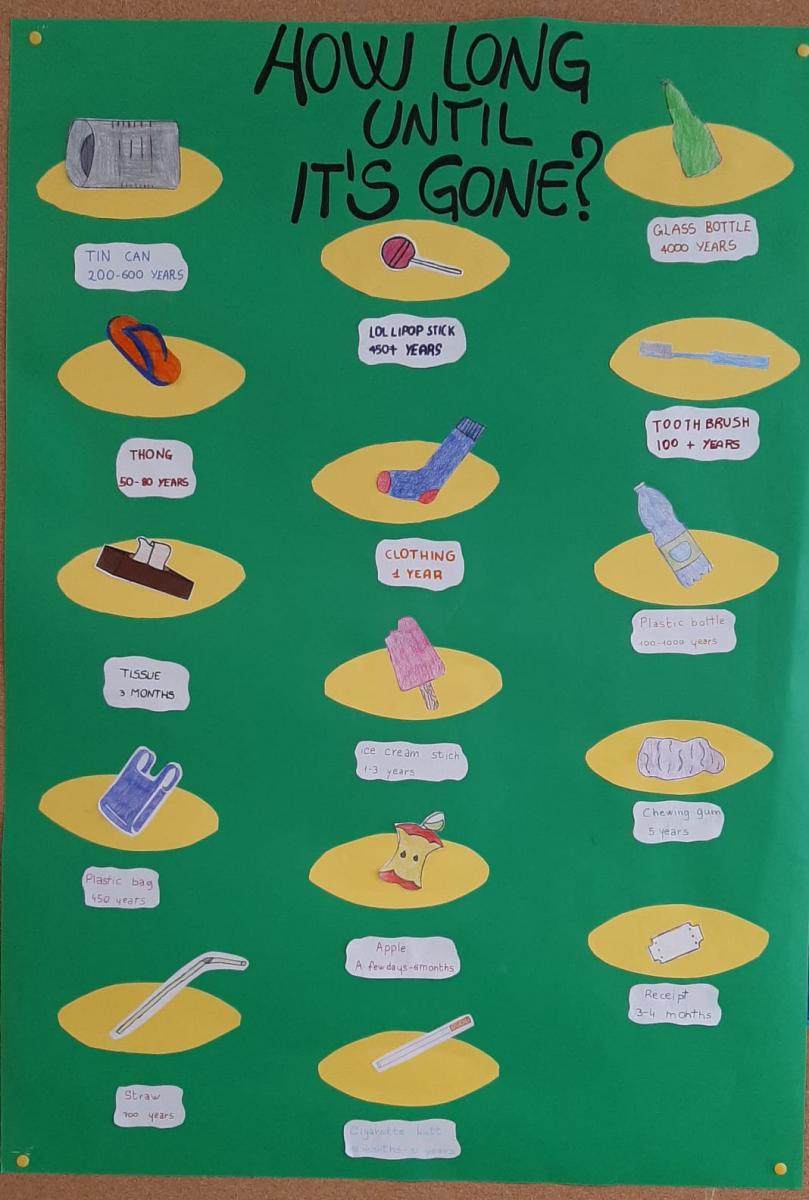 HOW LONG
UNTIL
IT'S GONE?
TIN CAN
200-600 YEARS
THONG
50-80 YEARS
TISSUE
3 MONTHS
Plastic bag
450 years
Straw
years
LOLLIPOP STICK
450+ YEARS
CLOTHING
1 YEAR
ice cream stich
1-3 years
Apple
A few days-6months
Cigarette butt
months- years
GLASS BOTTLE
4000 YEARS
TOOTHBRUSH
100 + YEARS
Plastic bottle
100-1000 years
Chewing gum
5 years
Receipt
3-4 months